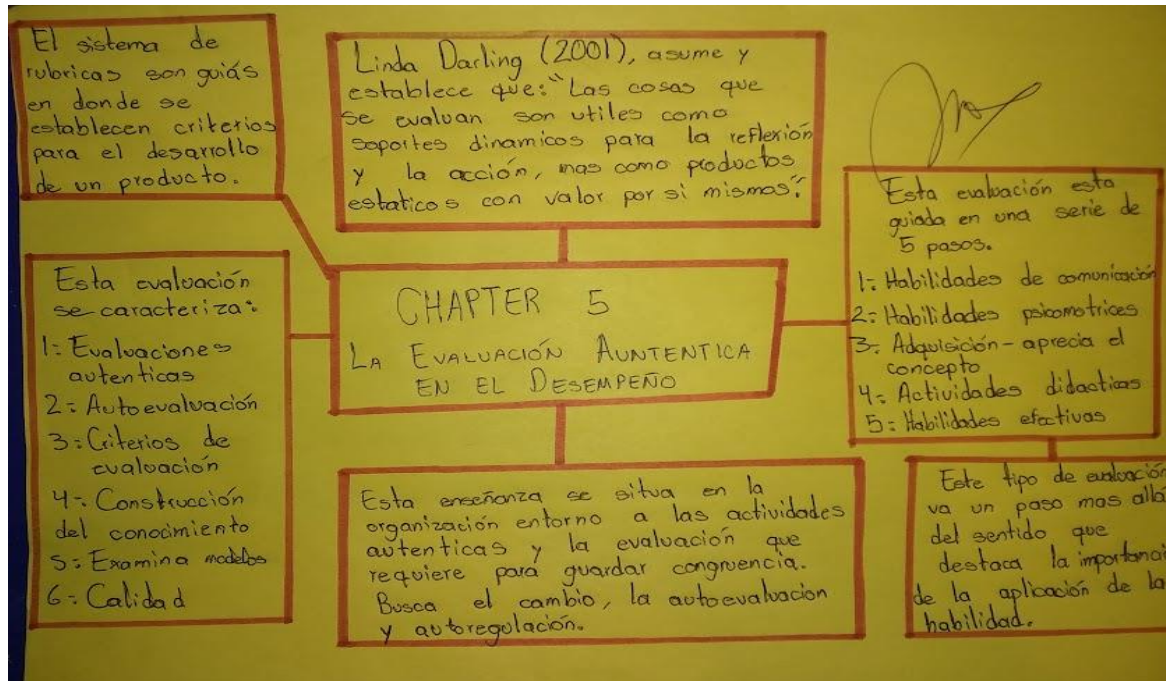 El sistema de
rubricas son guiás
en donde se
establecen criterios
para el desarrollo
de un producto.
Linda Darling (2001), asume y
establece que: "Las cosas que
se evaluan son utiles como
soportes dinamicos para la reflexión
y la acción, mas como productos
estaticos con valor por si mismos".
Esta evaluación esta
guiada en una serie de
5 pasos.
1: Habilidades de comunicación
2: Habilidades psicomotrices
3: Adquisición - aprecia el
concepto
4: Actividades didacticas
5: Habilidades efectivas
Esta evaluación
se caracteriza:
1: Evaluaciones
autenticas
2: Autoevaluación
3: Criterios de
evaluación
4: Construcción
del conocimiento
5: Examina modelos
6: Calidad
CHAPTER 5
LA EVALUACIÓN AUNTENTICA
EN EL DESEMPEÑO
Esta enseñanza se situa en la
organización entorno a las actividades
autenticas y la evaluación que
requiere para guardar congruencia.
Busca el cambio, la autoevaluación
y autoregulación.
Este tipo de evaluación
va un paso mas allá
del sentido que
destaca la importanci
de la aplicación de la
habilidad.